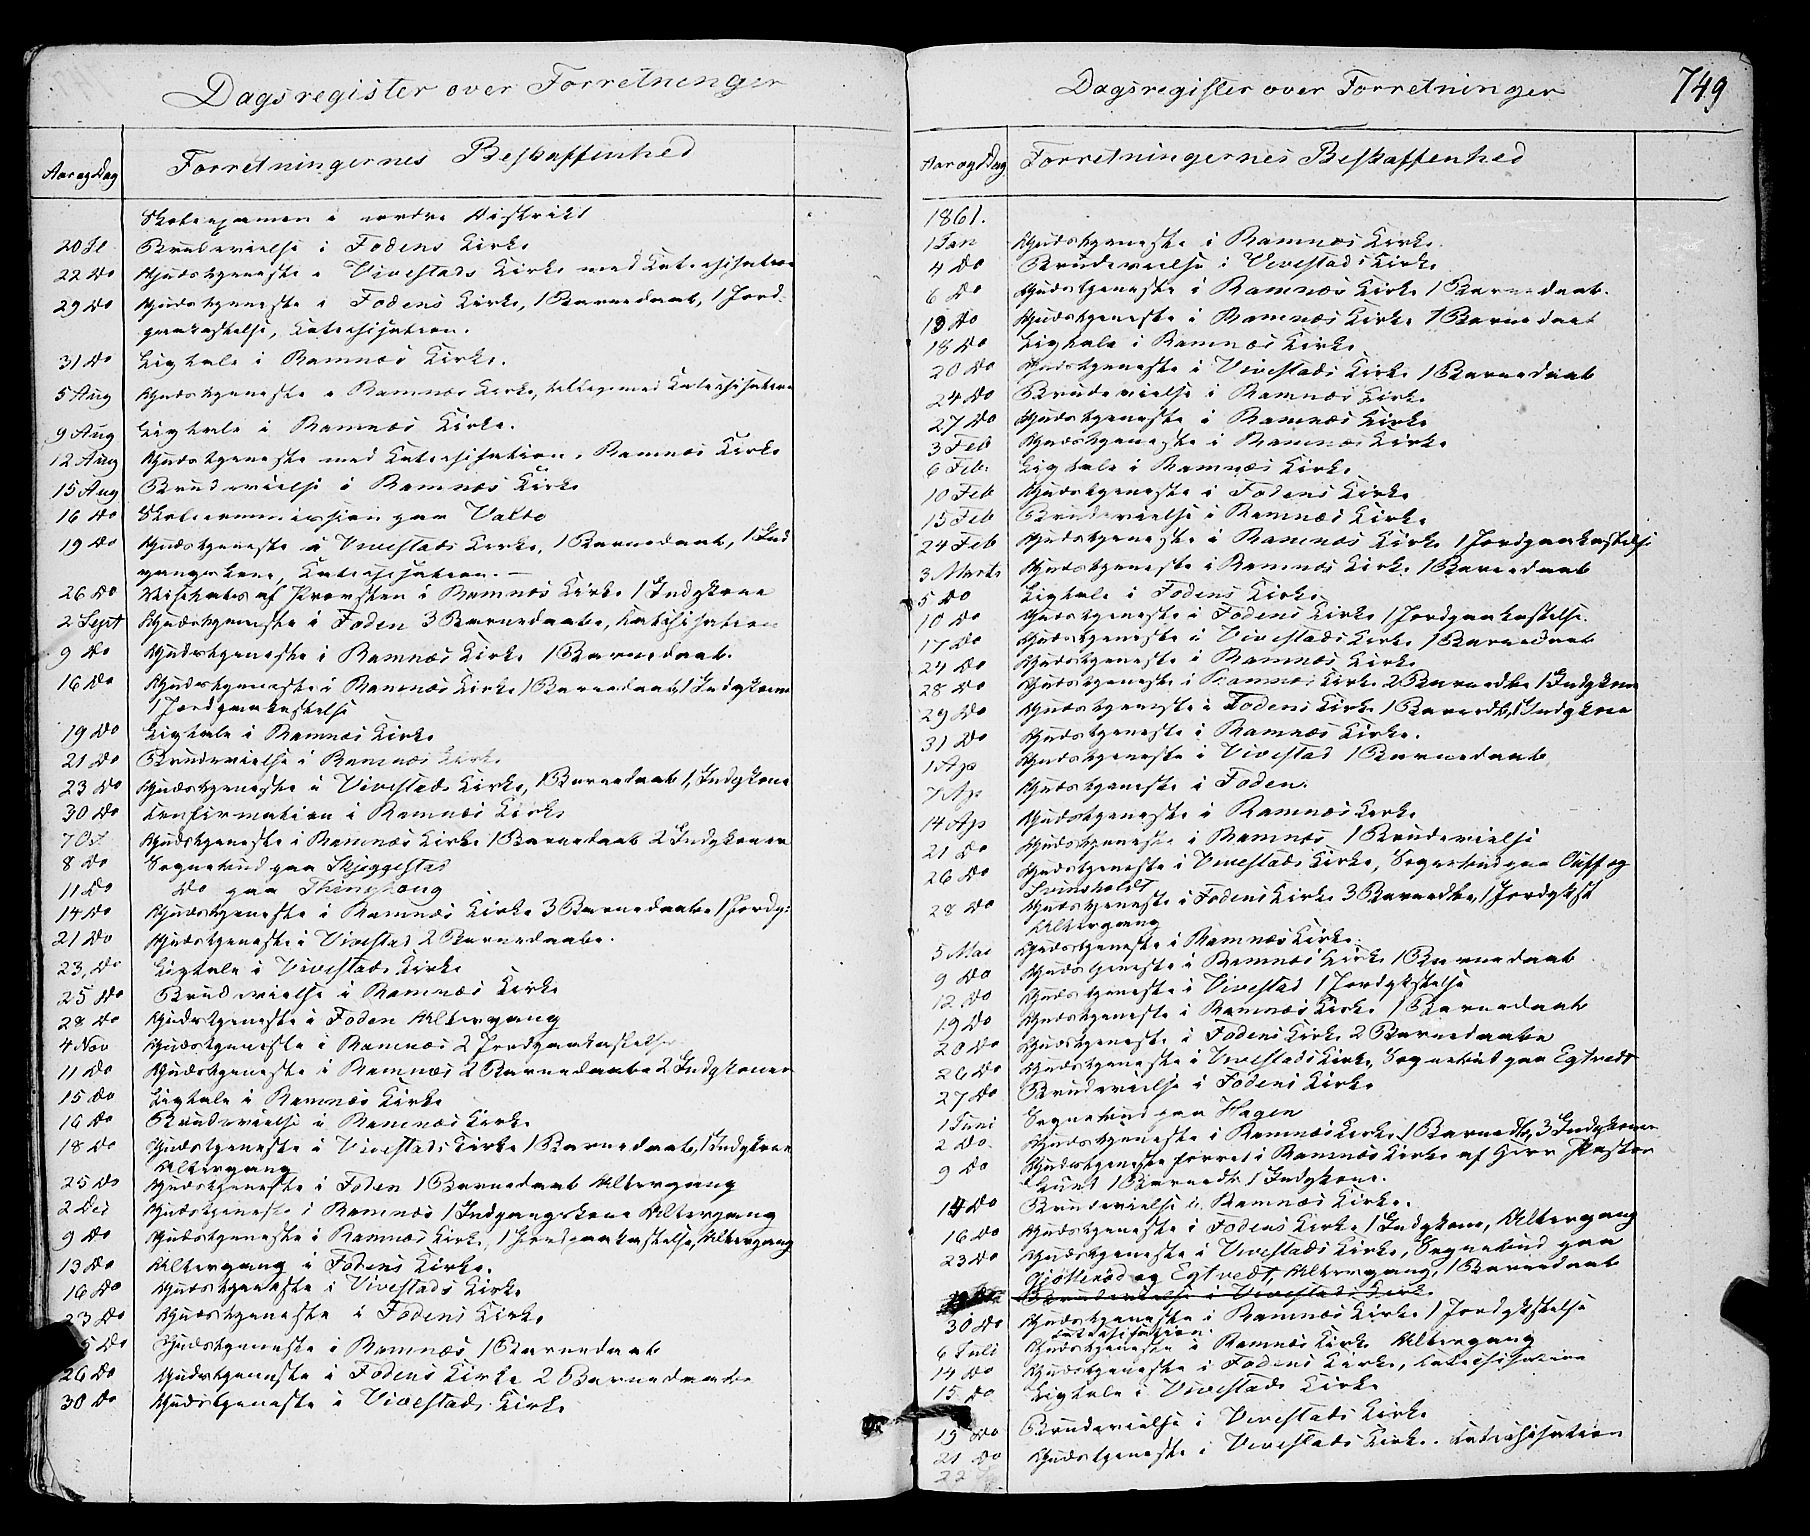 Dagsregister over Forretninger
Aar og Dag Forretningernes Beskaffenhed
Skoleexamen i nordre Distrikt
20 Jl Brudevielse i Fodens Kirke
22 Do Gudstjeneste i Vivestads Kirke med Catechisation
29 Do Gudstjeneste i Fodens Kirke, 1 Barnedaab, 1 Jord-
paakastelse, Catechisation.
31 Do Ligtale i Ramnæs Kirke.
5 Aug Gudstjeneste i Ramnæs Kirke, med Catechisation
9 Aug Ligtale i Ramnæs Kirke.
12 Aug Gudstjeneste med Catechisation i Ramnæs Kirke
15 Aug Brudevielse i Ramnæs Kirke
16 Do Skolecommission paa Valto
19 Do Gudstjeneste i Vivestads Kirke, 1 Barnedaab, 1 Ind
gangskone, Catechisation. —
26 Do Visitats af Provsten i Ramnæs Kirke 1 Indgkone
2 Sept Gudstjeneste i Foden 3 Barnedaabe, Catechisation
9 Do Gudstjeneste i Ramnæs Kirke 1 Barnedaab.
16 Do Gudstjeneste i Ramnæs Kirke 1 Barnedaab, 1 Indgkone
1 Jordpaakastelse
19 Do Ligtale i Ramnæs Kirke
21 Do Brudevielse i Ramnæs Kirke
23 Do Gudstjeneste i Vivestads Kirke, 1 Barnedaab 1 Indgkone
30 Do Confirmation i Ramnæs Kirke
7 Oct Gudstjeneste i Ramnæs Kirke 1 Barnedaab 2 Indgkoner
8 Do Sognebud paa Skjeggestad
11 Do Do paa Thinghoug
14 Do Gudstjeneste i Ramnæs Kirke 3 Barnedaabe 1 Jordp:
21 Do Gudstjeneste i Vivestad 2 Barnedaabe.
23, Do Ligtale i Vivestads Kirke
25 Do Brudevielse i Ramnæs Kirke
28 Do Gudstjeneste i Foden Altergang
4 Nov Gudstjeneste i Ramnæs 2 Jordpaakastelse
11 Do Gudstjeneste i Ramnæs 2 Barnedaabe 2 Indgkoner
15 Do Ligtale i Ramnæs Kirke
16 Do Brudevielse i Ramnæs Kirke
18 Do Gudstjeneste i Vivestads Kirke 1 Barnedaab, 1 Indgkone
Altergang
25 Do Gudstjeneste i Foden 1 Barnedaab Altergang
2 Dec Gudstjeneste i Ramnæs 1 Indgangskone Altergang
9 Do Gudstjeneste i Ramnæs Kirke, 1 Jordpaakastelse, Altergang
13 Do Altergang i Fodens Kirke.
16 Do Gudstjeneste i Vivestads Kirke
23 Do Gudstjeneste i Fodens Kirke
5 Do Gudstjeneste i Ramnæs 1 Barnedaab
26 Do Gudstjeneste i Fodens Kirke 2 Barnedaabe
30 Do Gudstjeneste i Vivestads Kirke
Dagsregister over Forretninger 749
Aar og Dag Forretningernes Beskaffenhed
1861.
1 Jan Gudstjeneste i Ramnæs Kirke.
4 Do Brudevielse i Vivestads Kirke
6 Do Gudstjeneste i Ramnæs Kirke 1 Barnedaab.
13 Do Gudstjeneste i Ramnæs Kirke 1 Barnedaab
18 Do Ligtale i Ramnæs Kirke
20 Do Gudstjeneste i Vivestads Kirke 1 Barnedaab
24 Do Brudevielse i Ramnæs Kirke
27 Do Gudstjeneste i Ramnæs Kirke
3 Feb Gudstjeneste i Ramnæs Kirke
6 Feb. Ligtale i Ramnæs Kirke
10 Feb Gudstjeneste i Fodens Kirke
15 Feb Brudevielse i Ramnæs Kirke
24 Feb Gudstjeneste i Ramnæs Kirke 1 Jordpaakastelse
3 Marts Gudstjeneste i Ramnæs Kirke 1 Barnedaab
5 Do Ligtale i Fodens Kirke
10 Do Gudstjeneste i Fodens Kirke 1 Jordpaakastelse.
17 Do Gudstjeneste i Vivestads Kirke 1 Barnedaab
24 Do Gudstjeneste i Ramnæs Kirke
28 Do Gudstjeneste i Ramnæs Kirke 2 Barnedbe 1 Indgkone
29 Do Gudstjeneste i Fodens Kirke 1 Barnedb, 1 Indgkone
31 Do Gudstjeneste i Ramnæs Kirke.
1 Ap Gudstjeneste i Vivestad 1 Barnedaab
7 Ap Gudstjeneste i Foden.
14 Ap Gudstjeneste i Ramnæs Kirke
21 Do Gudstjeneste i Ramnæs 1 Brudevielse
26 Do Gudstjeneste i Vivestads Kirke, Sognebud paa Ouff og
Svinsholdt
28 Do Gudstjeneste i Fodens Kirke 3 Barnedbe, 1 Jordpkst
Altergang
5 Mai Gudstjeneste i Ramnæs Kirke.
9 Do Gudstjeneste i Ramnæs Kirke 1 Barnedaab
12 Do Gudstjeneste i Vivestad 1 Jordpkstelse
19 Do Gudstjeneste i Ramnæs Kirke 1 Barnedaab
20 Do Gudstjeneste i Fodens Kirke 2 Barnedaabe
26 Do Gudstjeneste i Vivestads Kirke, Sognebud paa Egtvedt
27 Do Brudevielse i Fodens Kirke
1 Juni Sognebud paa Hagen
2 Do Gudstjeneste i Ramnæs Kirke 1 Barnedb, 3 Indgkoner
9 Do Gudstjeneste forret i Ramnæs Kirke af Herr Pastor
Lund 1 Barnedb 1 Indgkone.
14 Do Brudevielse i Ramnæs Kirke.
16 Do Gudstjeneste i Fodens Kirke 1 Indgkone, Altergang
23 Do Gudstjeneste i Vivestads Kirke, Sognebud paa
Gjötteröd og Egtvedt, Altergang, 1 Barnedaab
Brudevielse i Vivestads Kirke
30 Do Gudstjeneste i Ramnæs Kirke 1 Jordpkstelse
Catechisation.
6 Juli Gudstjeneste i Ramnæs Kirke Altergang
14 Do Gudstjeneste i Fodens Kirke, Catechisation
15 Do Ligtale i Vivestads Kirke
19 Do Brudevielse i Vivestads Kirke
21 Do Gudstjeneste i Vivestads Kirke. Catechisation
22